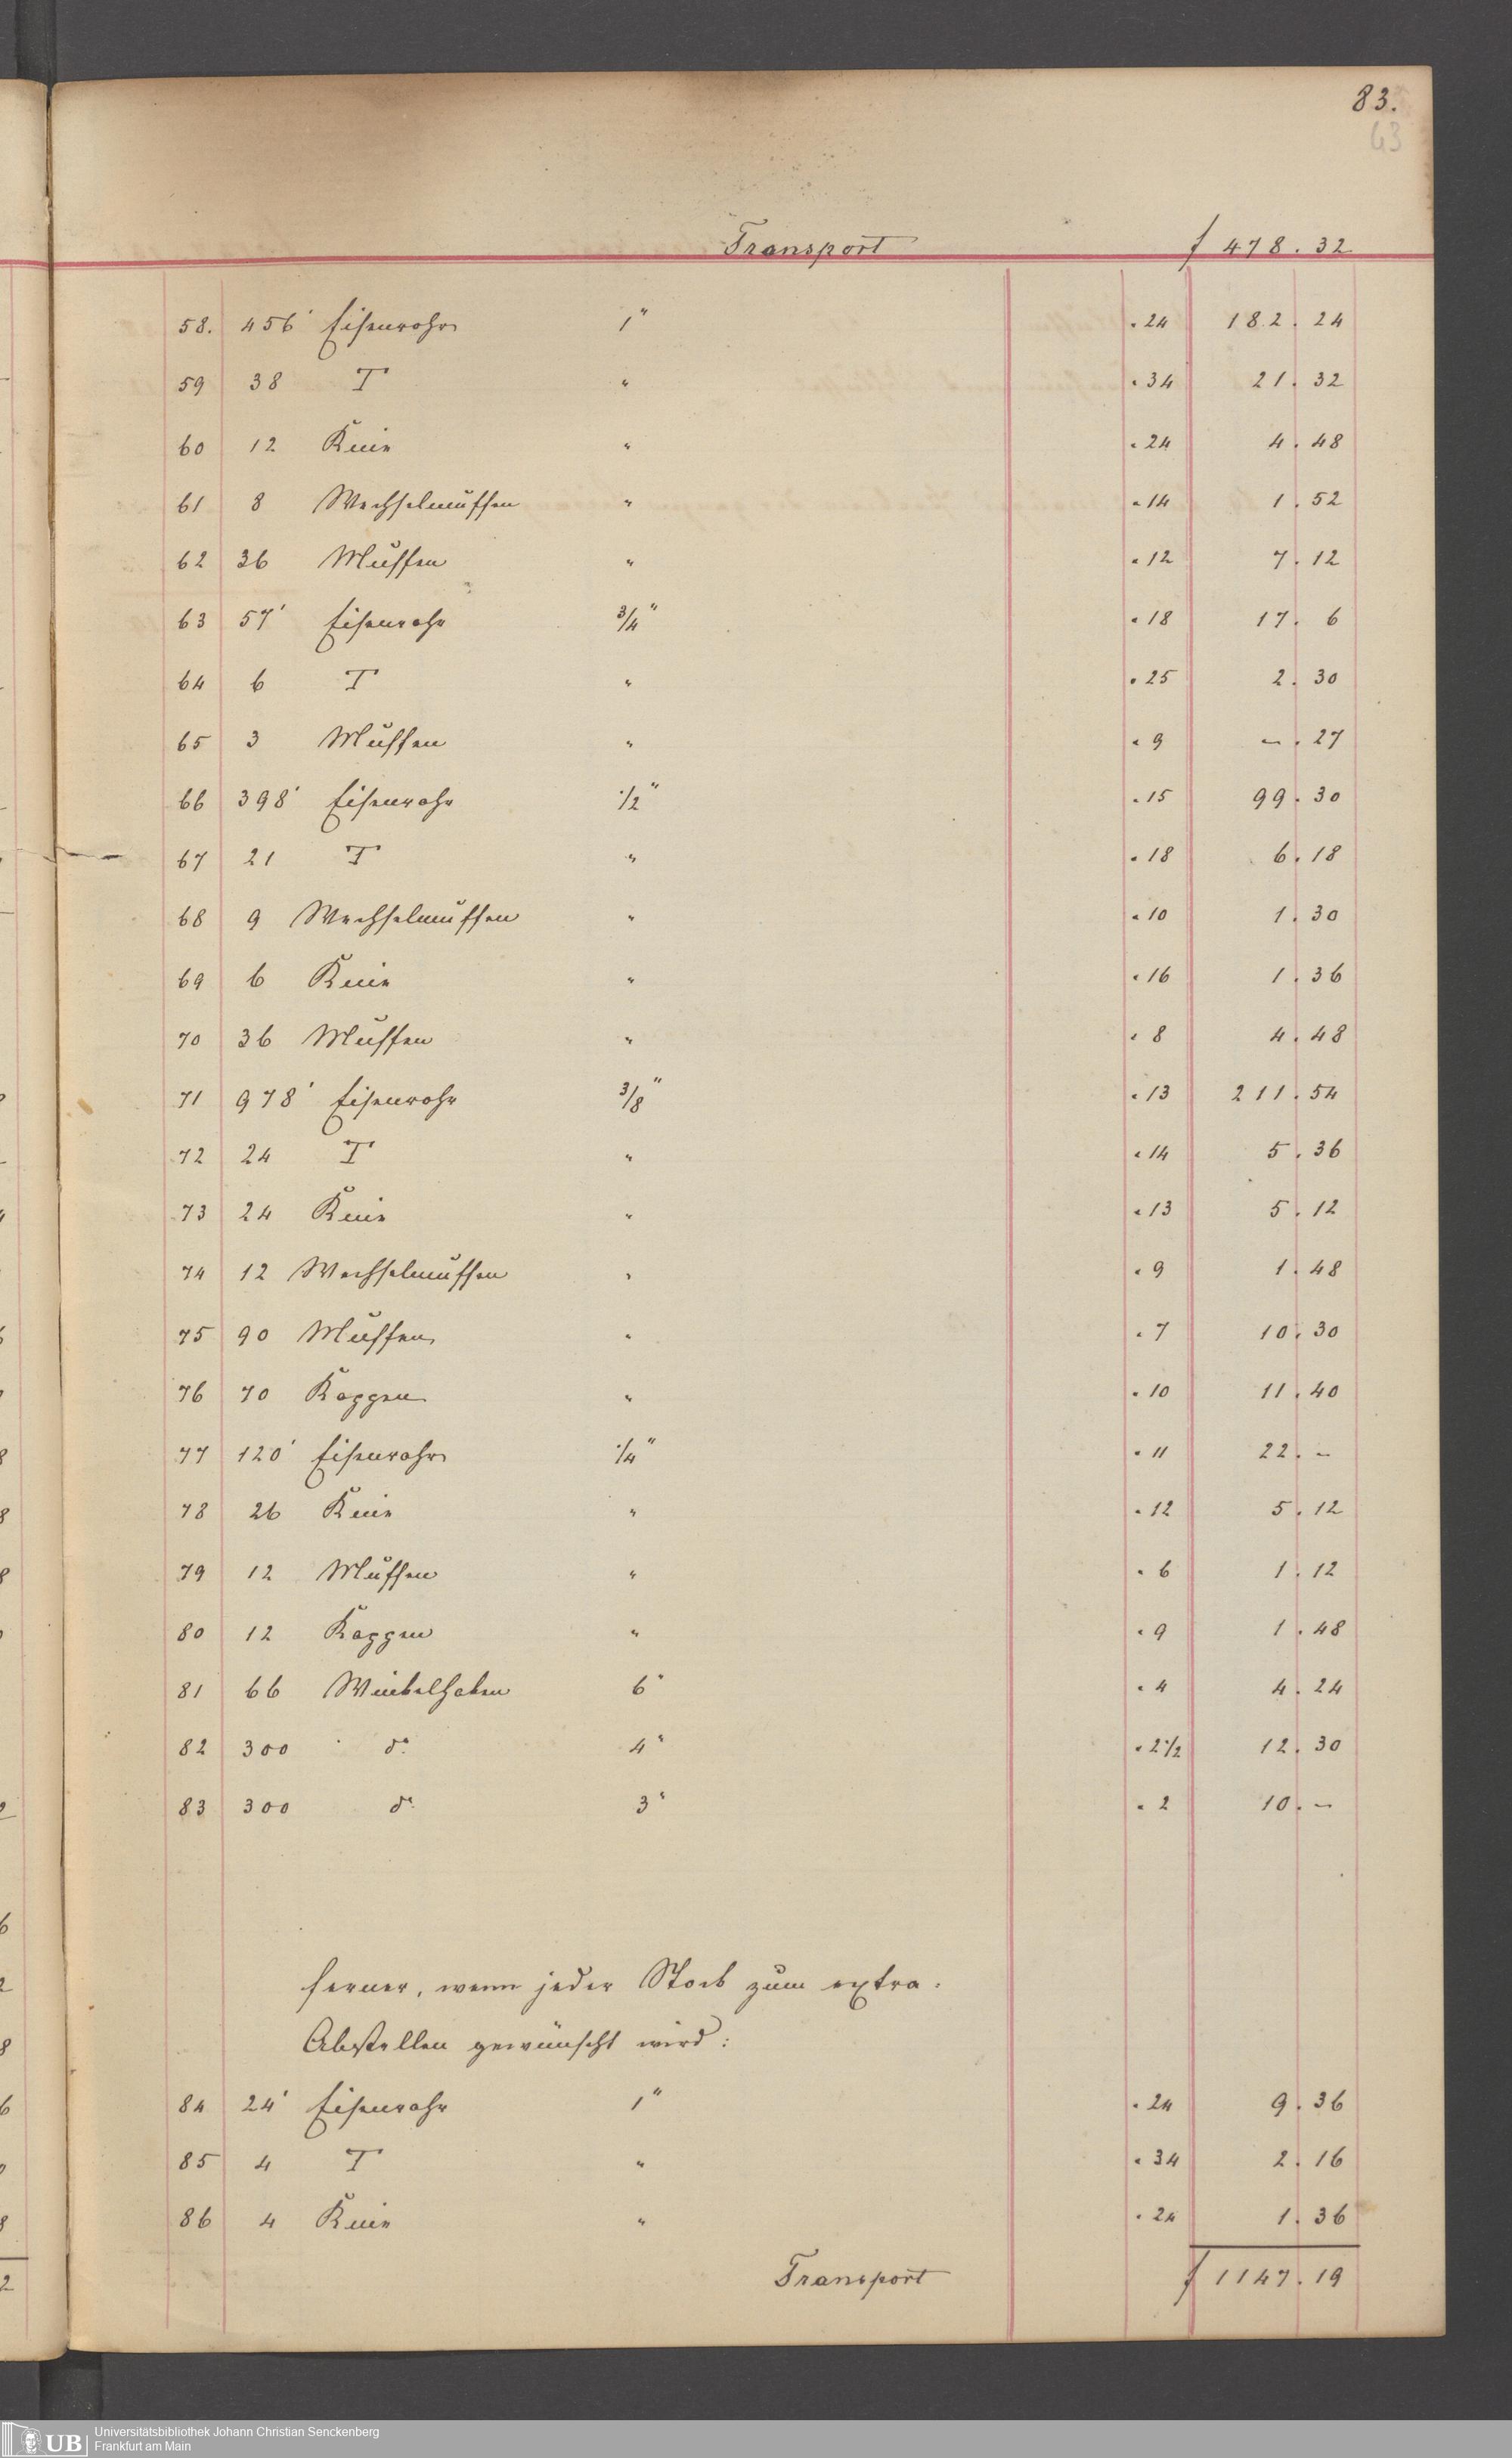 83.
63
Transport f 478. 32
58. 456' Eisenrohr 1" " 24 182. 24
59 38 T " " 34 21. 32
60 12 Knie " " 24 4. 48
61 8 Wechselmuffen " " 14 1. 52
62 36 Muffen " " 12 7. 12
63 57' Eisenrohr 3/4" " 18 17. 6
64 6 T " " 25 2. 30
65 3 Muffen " " 9 – . 27
66 398' Eisenrohr 1/2" " 15 99. 30
67 21 T " " 18 6. 18
68 9 Wechselmuffen " " 10 1. 30
69 6 Knie " " 16 1. 36
70 36 Muffen " " 8 4. 48
71 978' Eisenrohr 3/8" " 13 211. 54
72 24 T " " 14 5. 36
73 24 Knie " " 13 5. 12
74 12 Wechselmuffen " " 9 1. 48
75 90 Muffen " " 7 10. 30
76 70 Kappen " " 10 11. 40
77 120' Eisenrohr 1/4" " 11 22. –
78 26 Knie " " 12 5. 12
79 12 Muffen " " 6 1. 12
80 12 Kappen " " 9 1. 48
81 66 Winkelhaken 6" " 4 4. 24
82 300 do. 4" " 2 1/2 12. 30
83 300 do. 3" " 2 10. –
ferner, wenn jeder Stock zum extra-
Abstellen gewünscht wird:
84 24' Eisenrohr 1" " 24 9. 36
85 4 T " " 34 2. 16
86 4 Knie " " 24 1. 36
Transport f 1147. 19
UB Universitätsbibliothek Johann Christian Senckenberg
Frankfurt am Main